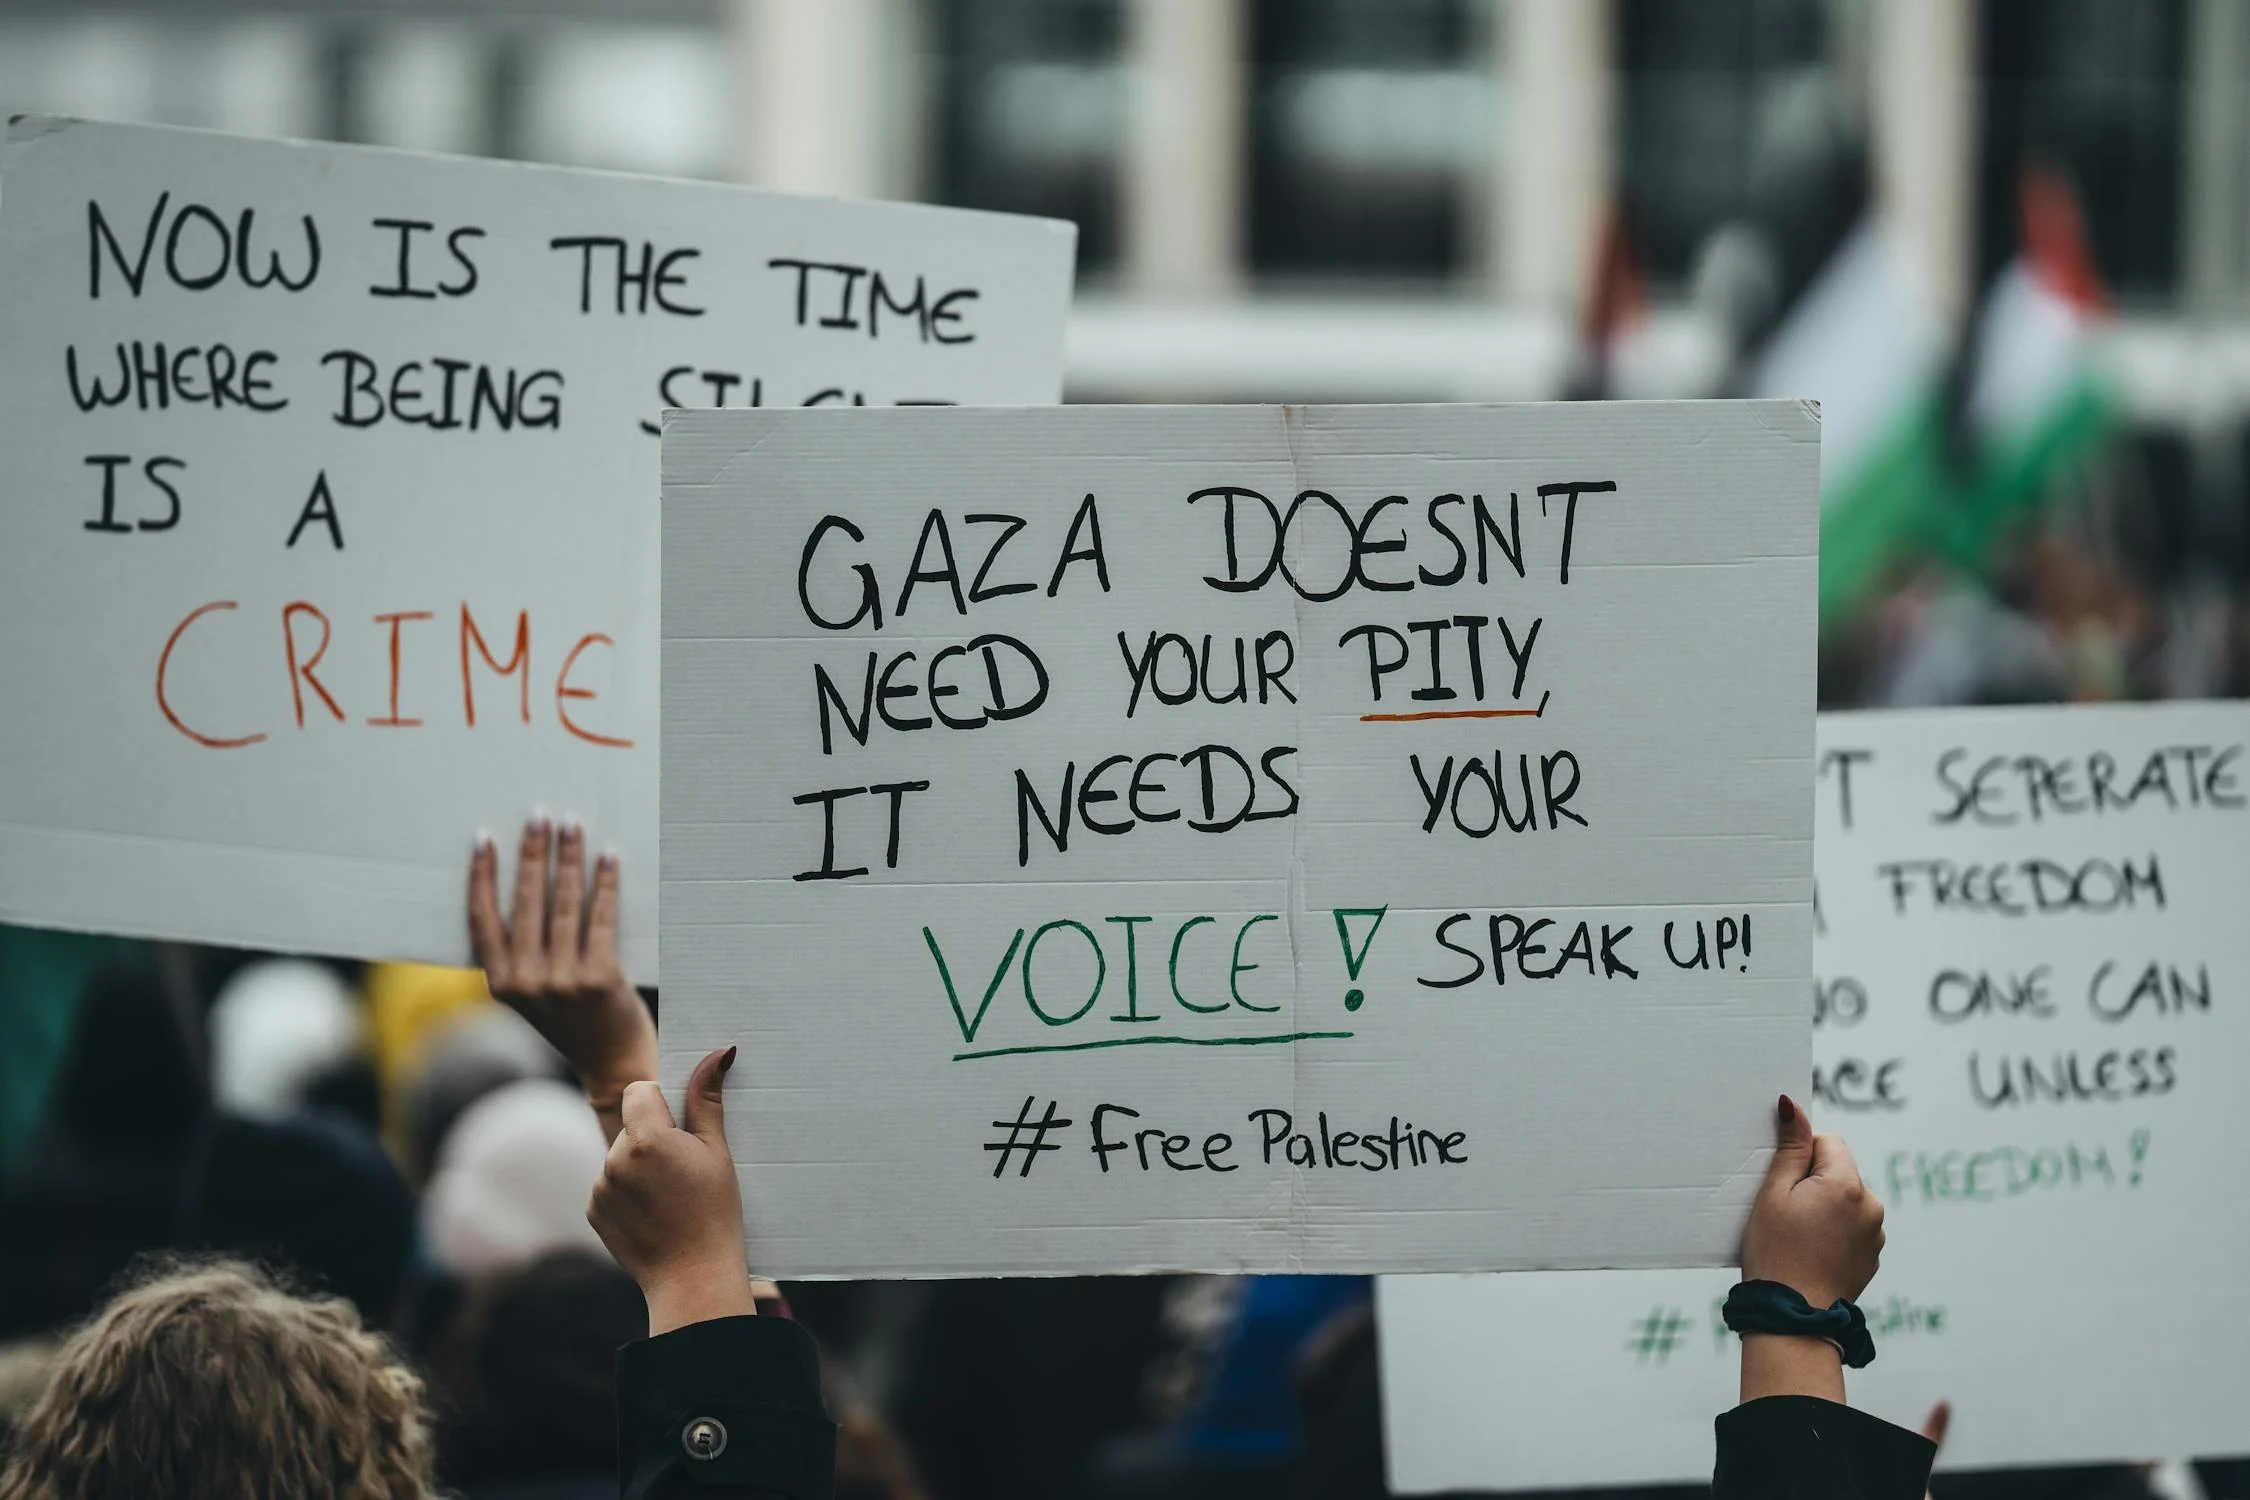 NOW IS THE TIME
WHERE BEING
IS A
CRIME
GAZA DOESNT
NEED YOUR PITY,
IT NEEDS YOUR
VOICE! SPEAK UP!
#FreePalestine
SEPERATE
FREEDOM
ONE CAN
UNLESS
FREEDOM!
#